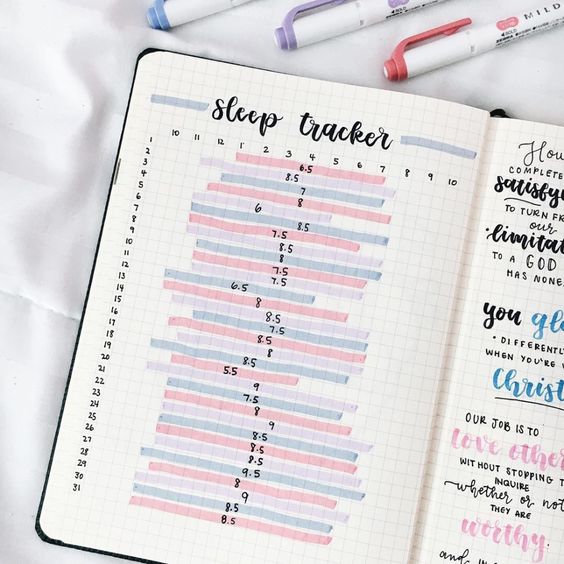 MILD
sleep tracker
10 11 12 1 2 3 4 5 6 7 8 9 10
1 6.5
2 8.5
3 7
4 8
5 6
6 8.5
7 7.5
8 8.5
9 8
10 7.5
11 7.5
12 6.5
13 8
14 8.5
15 7.5
16 8.5
17 8
18 8.5
19 5.5
20 9
21 7.5
22 8
23 9
24 8.5
25 8.5
26 8.5
27 9.5
28 8
29 9
30 8.5
31 8.5
How
COMPLETE
satisfy
TO TURN
our
limitat
TO A GOD
HAS NONE
you glo
• DIFFERENTL
WHEN YOU'RE
Christ
OUR JOB IS TO
love other
WITHOUT STOPPING T
INQUIRE
whether or not
THEY ARE
worthy.
and